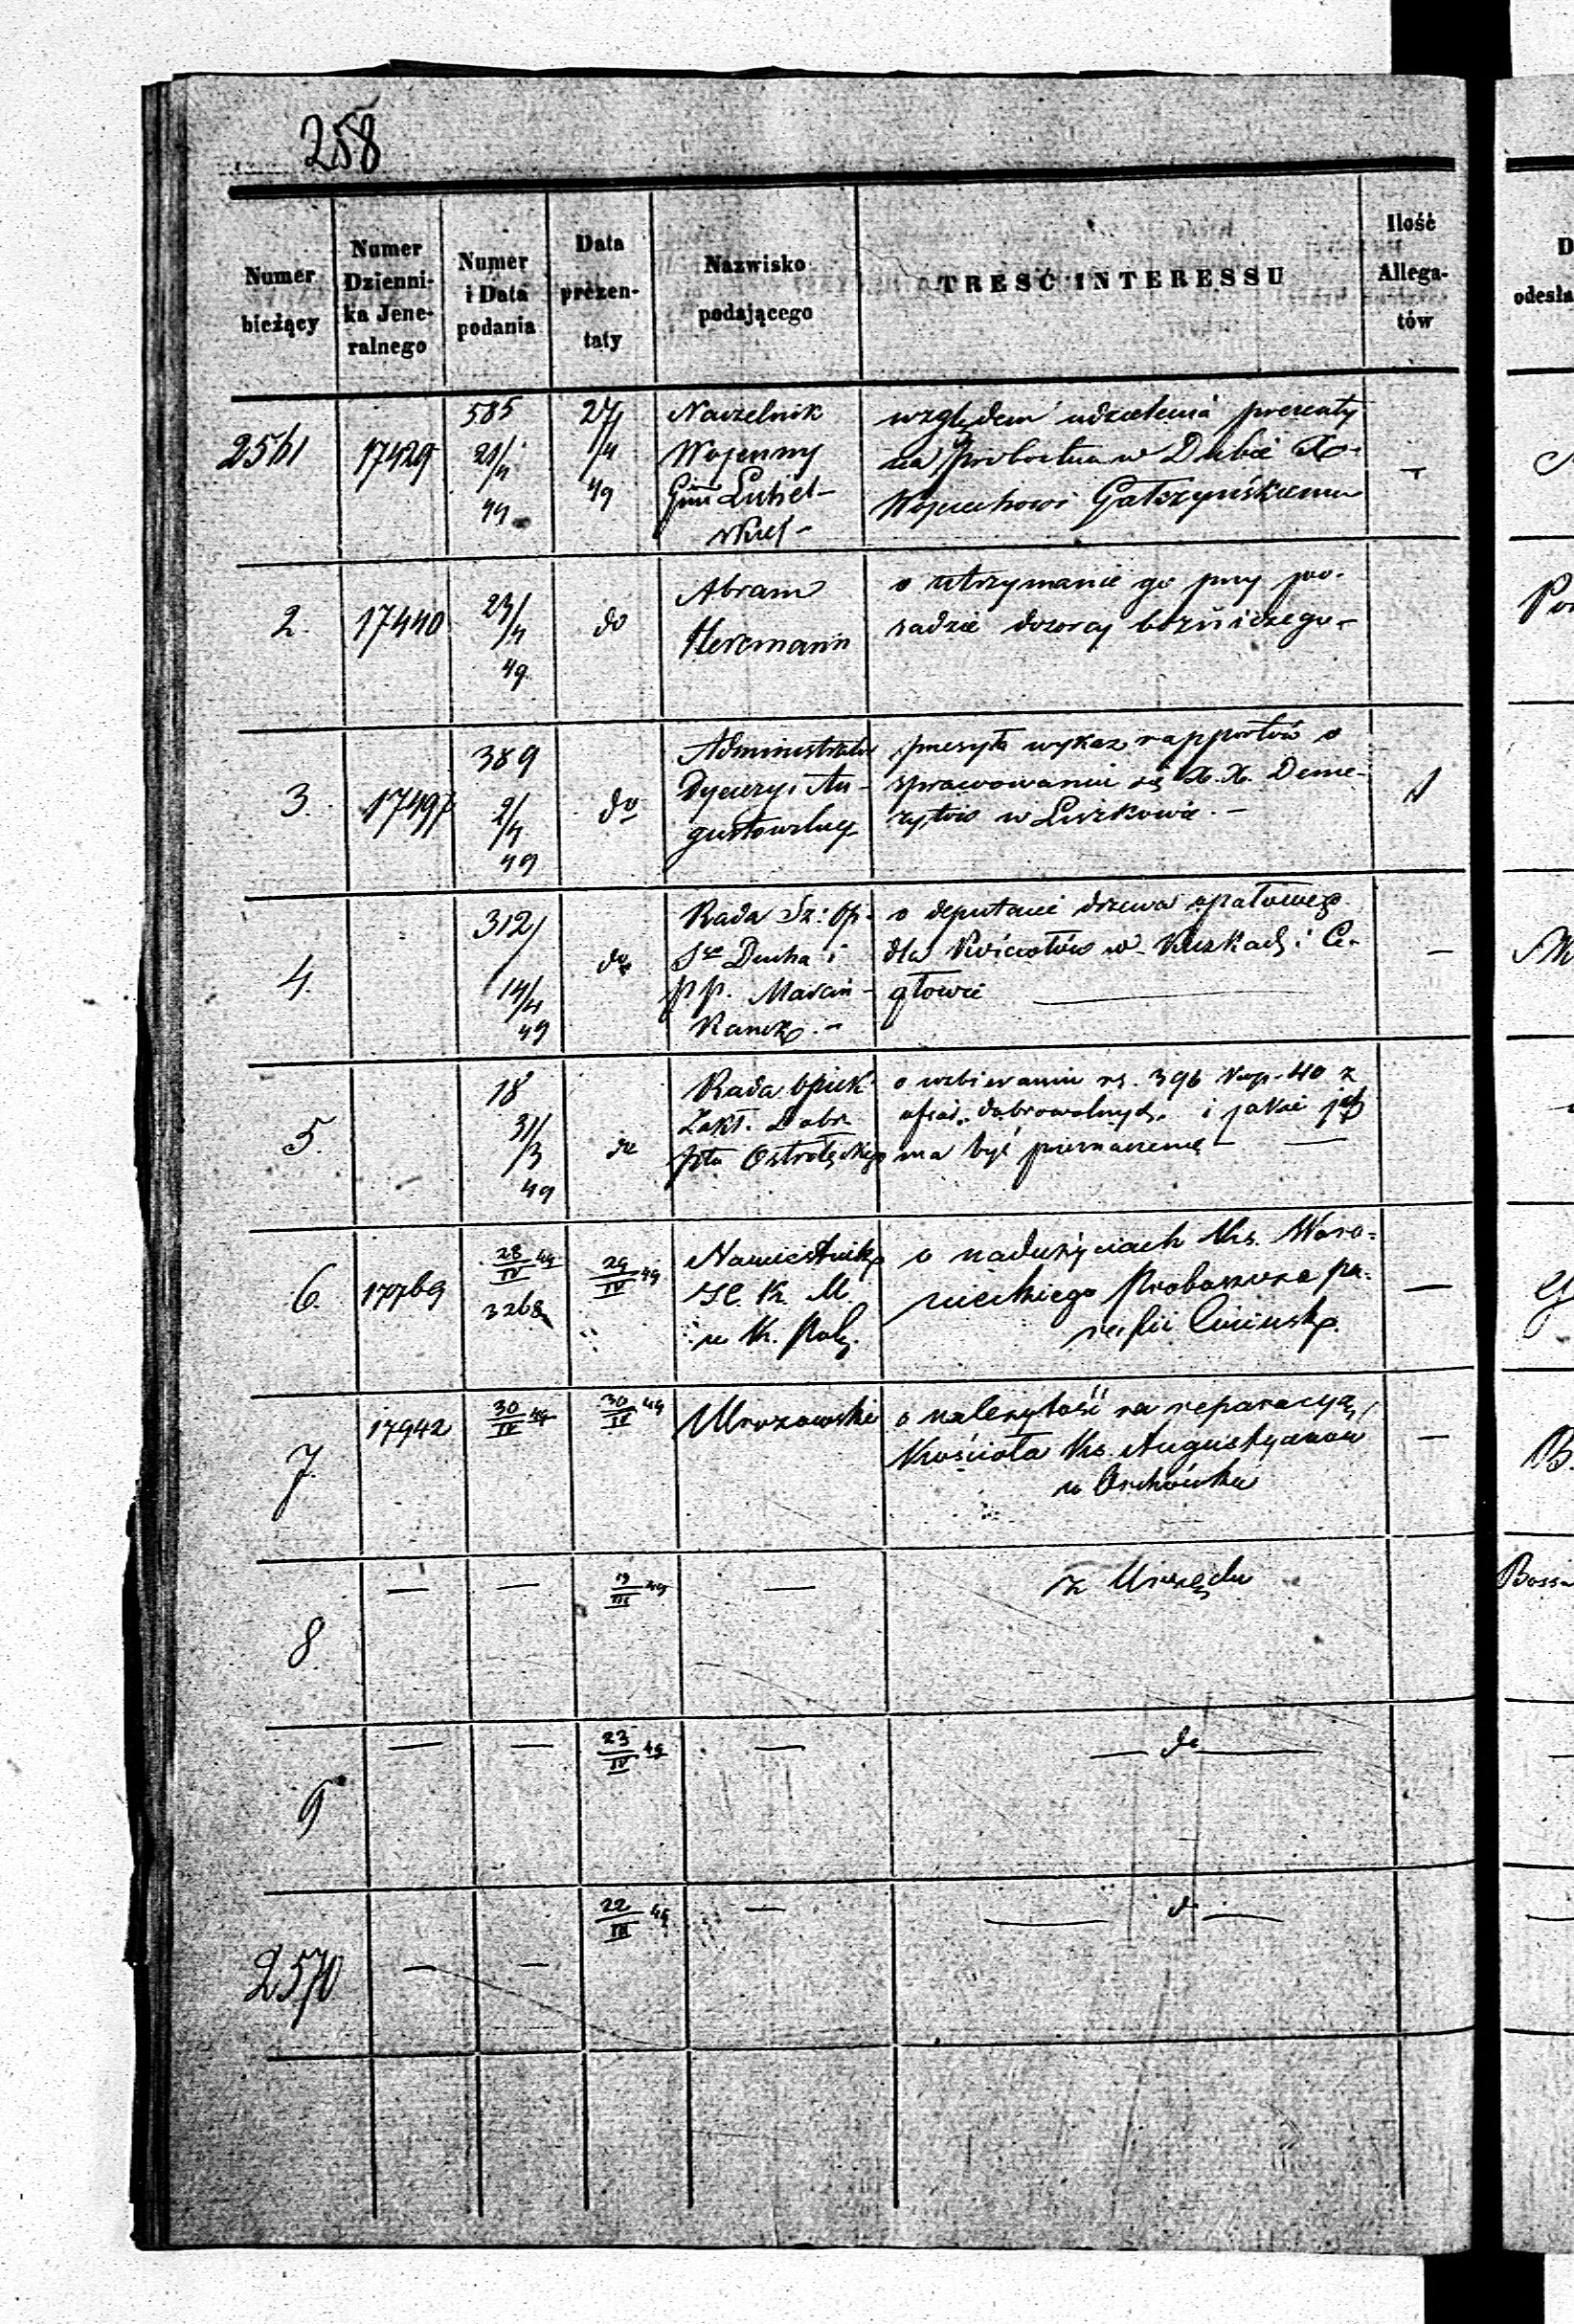 258
Numer bieżący
Numer Dzienni-ka Jene-ralnego
Numer i Data podania
Data prezen-taty
Nazwisko podającego
TREŚĆ INTERESSU
Ilość Allega-tów
2561
17429
585
21/4
49
27/
/4
49
Naczelnik
Wojenny
Lubel-
względem udzielenia prezenty
na Probostwo w Dubie X.
Wojciechowi Gałczyńskiemu
2.
17440
23/
/4
49
do
Abram
Hercmann
o utrzymanie go przy po-
sadzie dozorcy bożniczego
3.
17497
389
2/
/4
49
do
Administrator
Dyecezyi Au-
gustowskiej
przesyła wykaz rapportów o
sprawowaniu się X.X. Deme-
rytów w Liszkowie.
1
4.
312/
14/4
49
do
Rada Sz: Op.
Sgo Ducha i
P.P. Marcin-
kanek
o deputacie drzewa opałowego
dla Kościołów w i Ce-
głowie
5.
18
31/
/3
49
do
Rada Opiek
Zakł. Dobr.
Ptu Ostrołęckiego
rs. 396 kop. 40 z
ofiar dobrowolnych i jakie jej
ma być przeznaczenie
6.
17769
28/IV 49
3268
29/IV 49
Namiestnik
J.C.K.M.
w K. Pol.
o nadużyciach Ks. Woro-
nieckiego Proboszcza pa-
rafii
7.
17942
30/IV 49
30/IV 49
Mrozowski
o należytość za reparacyą
Kościoła Ks. Augustyanów
w Orchówku
8.
—
—
19/III 49
—
z Urzędu
9
—
—
23/IV 49
—
— do —
2570
—
—
22/III 49
—
— d —
D
odesła